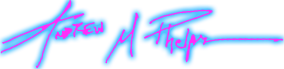 Andrew M Phelps